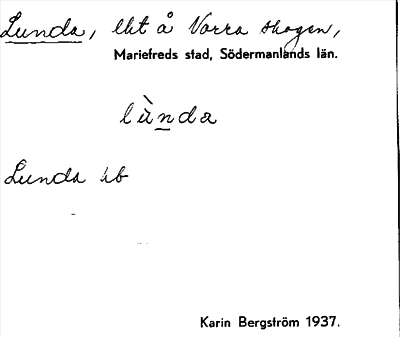 Lunda, lht å Norra skogen,
Mariefreds stad, Södermanlands län.
lùnda
Lunda ub
Karin Bergström 1937.